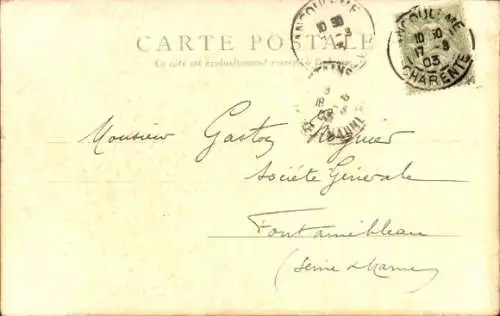 ANGOULÊME
10 30
CARTE POSTALE
Ce côté est exclusivement réservé à l'adresse
ANGOULEME
10 30
17 -8
03
CHARENTE
18
MARNE
Monsieur Gaston Regnier
Société Générale
Fontainebleau
(Seine & Marne)